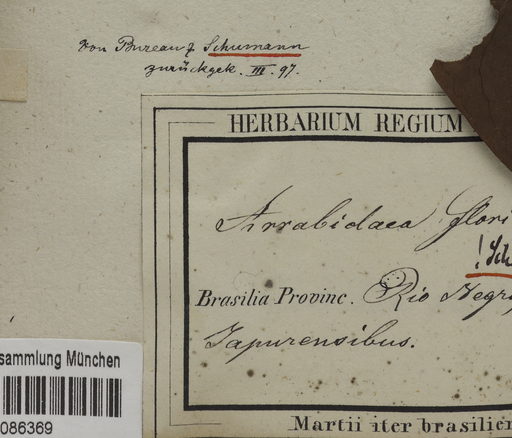 von Bureau & Schumann
zurückgek. III. 97.
HERBARIUM REGIUM
Arrabidaea flori
! Sch
Brasilia Provinc. Rio Negro
Japurensibus.
sammlung München
086369
Martii iter brasilien